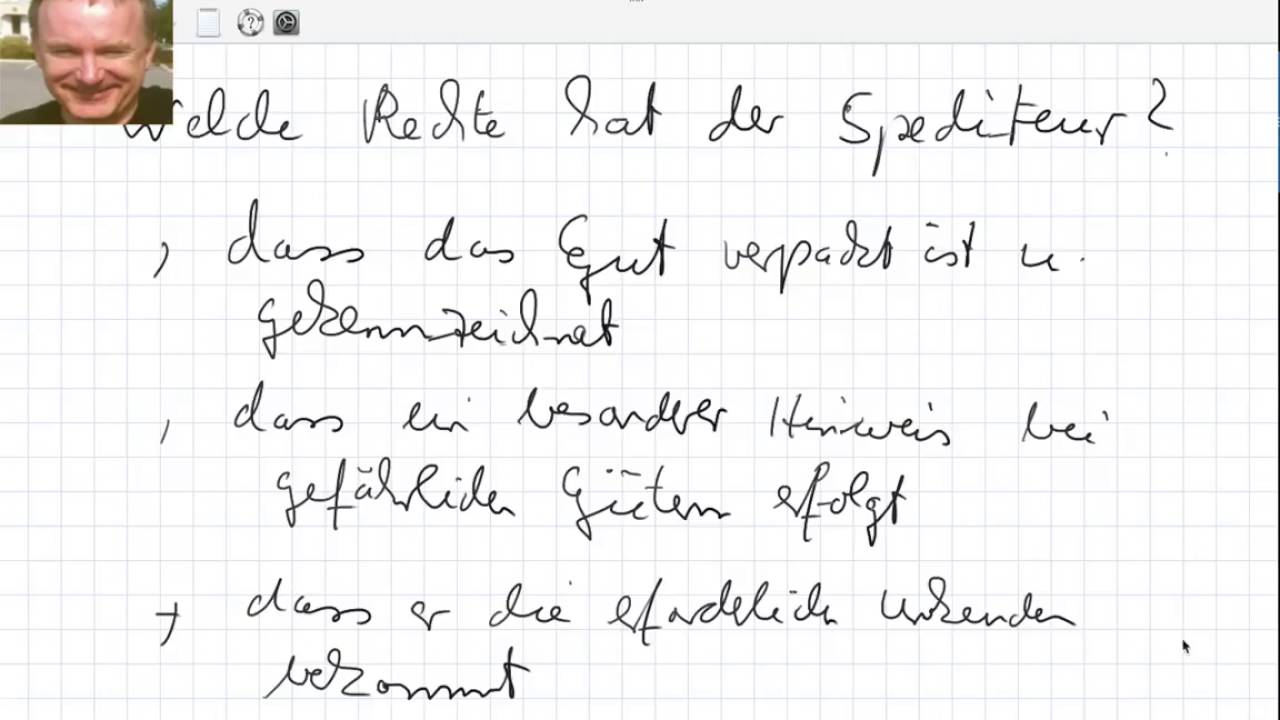 Welche Rechte hat der Spediteur?
, dass das Gut verpackt ist u.
gekennzeichnet
, dass ein besonderer Hinweis bei
gefährlichen Gütern erfolgt
, dass er die erforderlich Urkunden
bekommt